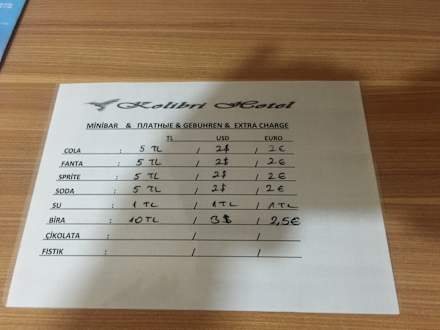 Kolibri Hotel
MİNİBAR & ПЛАТНЫЕ & GEBUHREN & EXTRA CHARGE
TL USD EURO
COLA : 5 TL / 2$ / 2€
FANTA : 5 TL / 2$ / 2€
SPRİTE : 5 TL / 2$ / 2€
SODA : 5 TL / 2$ / 2€
SU : 1 TL / 1 TL / 1 TL
BİRA : 10 TL / 3$ / 2,5€
ÇİKOLATA : / /
FISTIK : / /